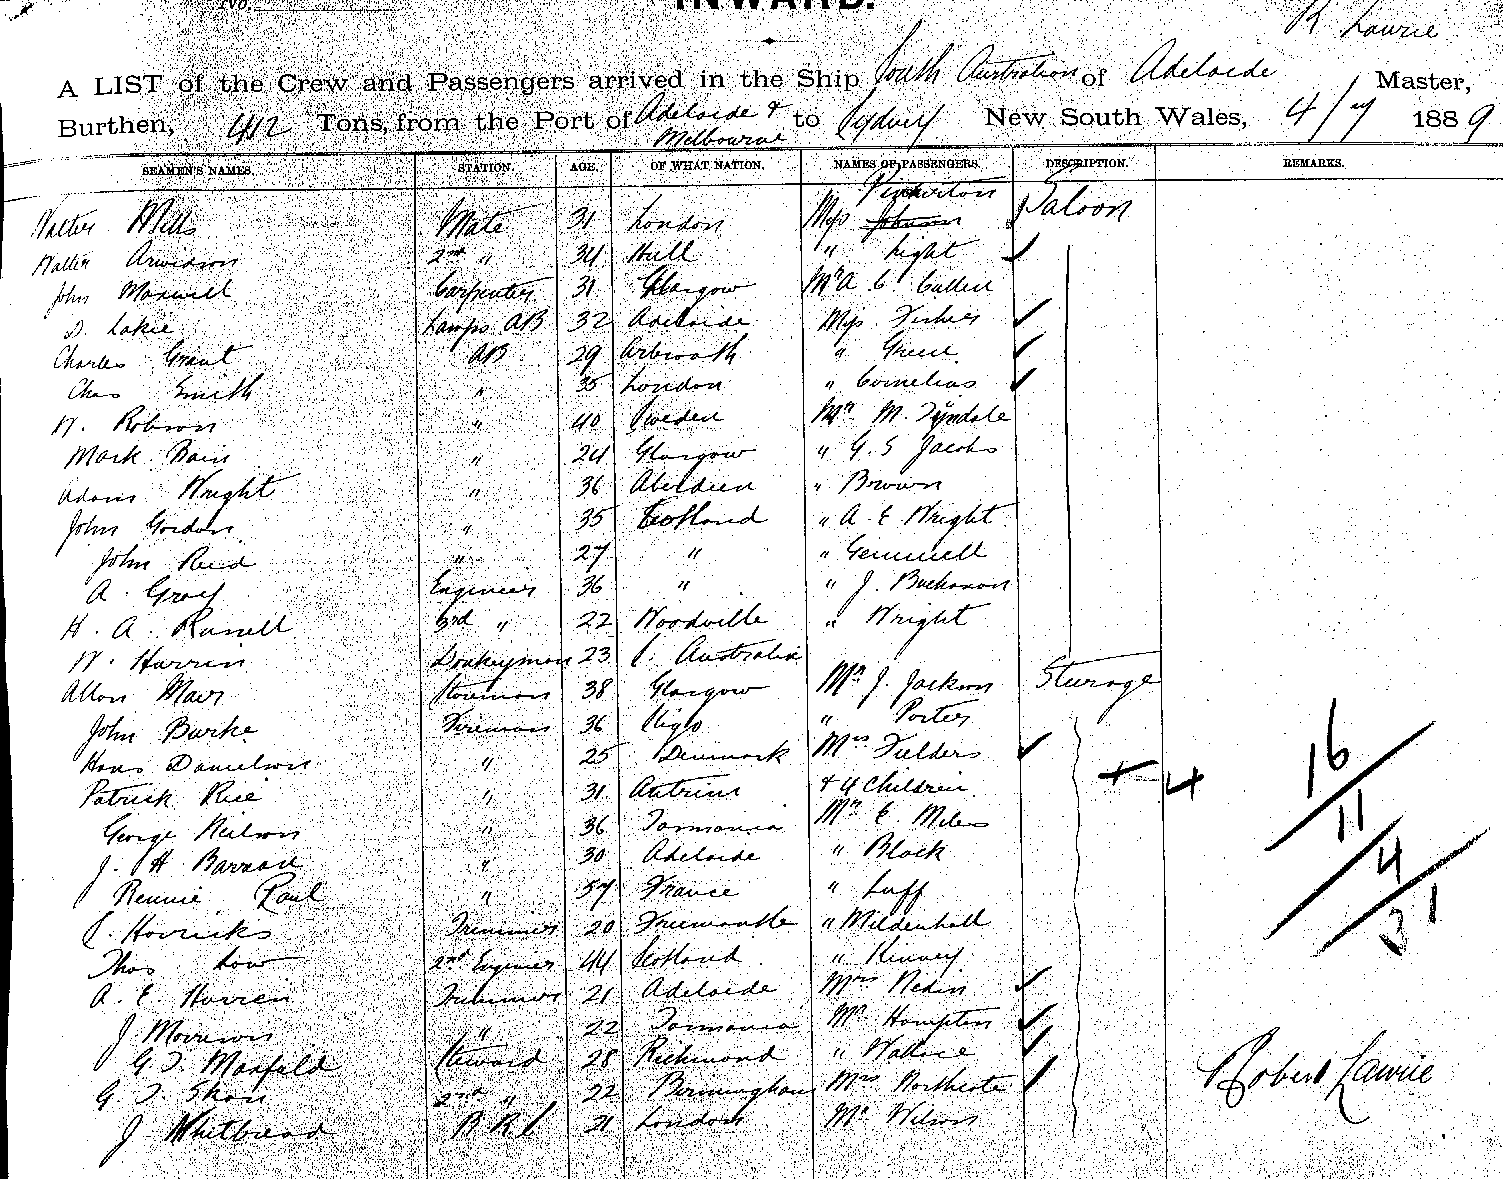 No.
INWARD.
R Lawrie
A LIST of the Crew and Passengers arrived in the Ship South Australian of Adelaide Master,
Burthen, 412 Tons, from the Port of Adelaide & Melbourne to Sydney New South Wales, 4/7 1889
SEAMEN'S NAMES. STATION. AGE. OF WHAT NATION. NAMES OF PASSENGERS. DESCRIPTION. REMARKS.
Walter Mills Mate 31 London Miss Pinkerton Saloon
Walter Arwidson 2nd " 34 Hull " Light
John Maxwell Carpenter 31 Glasgow Mr A C Cullen
D. Lakie Lamps AB 32 Adelaide Miss Fisher
Charles Grant AB 29 Arbroath " Green
Chas Smith " 35 London " Cornelias
N. Robson " 40 Sweden Mr M. Tyndale
Mark Bain " 24 Glasgow " G. S Jacobs
Adam Wright " 36 Aberdeen " Brown
John Gordon " 35 Scotland " A E Wright
John Reid " 27 " " Gemmell
A. Gray Engineer 36 " " J. Buchanan
H. A. Russell 3rd " 22 Woodville " Wright
W. Harrin Donkeyman 23 S. Australia
Allan Mair Storeman 38 Glasgow Mr J. Jackson Steerage
John Burke Fireman 36 Sligo " Porter
Hans Danielson " 25 Denmark Mrs Fielders
Patrick Rice " 31 Antrim + 4 Children + 4
George Neilson " 36 Tasmania Mr E. Miles
J. H Barran " 30 Adelaide " Black
Rennie Paul " 57 France " Luff
S. Horricks Trimmer 20 Freemantle " Mildenhall
Thos Low 2nd Engineer 44 Scotland " Kenney
A. E. Harren Trimmer 21 Adelaide Mrs Redin
J Morrison " 22 Tasmania Mr Hampton
G. T. Maxfield Steward 28 Richmond " Wallace
G T. Shan 2nd " 22 Birmingham Mrs Northcote
J Whitbread 21 London Mr Wilson
16
11
4
31
Robert Lawrie